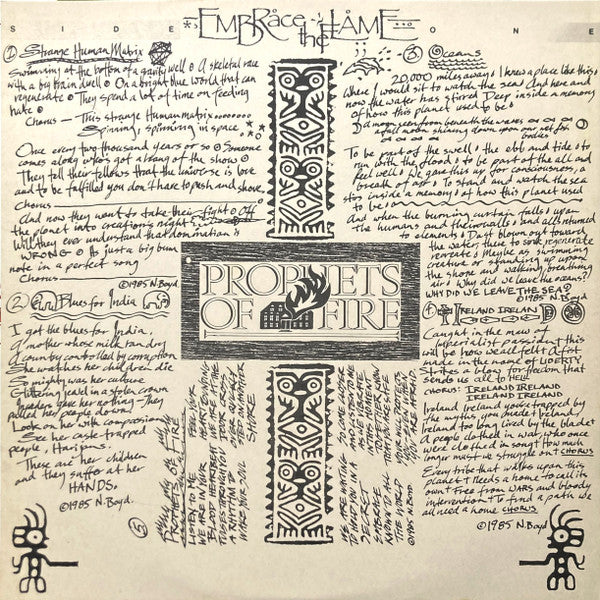 EMBRACE the FLAME
SIDE ONE
① Strange Human Matrix
Swimming at the bottom of a gravity well • A skeletal race
with a big brain dwell • On a bright blue world that can
regenerate • They spend a lot of time on feeding
hate •
Chorus — This strange Human matrix........
Spinning, spinning in space
Once every two thousand years or so • Someone
comes along who's got a hang of the show •
They tell their fellows that the universe is love
and to be fulfilled you don't have to push and shove.
Chorus
And now they want to take their fight • Off
the planet into creation's night
Will they ever understand that domination is
WRONG • It's just a big bum
note in a perfect song
Chorus
©1985 N. Boyd.
② Blues for India
I got the blues for India,
a mother whose milk ran dry
A country controlled by corruption
She watches her children die
So mighty was her culture
Glittering jewel in a stolen crown
Leaders gave her nothing • They
pulled her people down,
Look on her with compassion
See her caste trapped
people, Harijans.
These are her children
and they suffer at her
HANDS.
©1985 N. Boyd.
③ Oceans
20,000 miles away • I knew a place like this •
Where I would sit to watch the sea • And here and
now the water has stirred • Deep inside a memory
of how this planet used to be •
Diamonds seen from beneath the waves
a full moon shining down upon our wet fur
bodies
To be part of the swell • the ebb and tide • to
run with the flood • to be part of the all and
feel well • We gave this up for consciousness, a
breath of air • To stand and watch the sea
stir inside a memory • of how this planet used
to be •
And when the burning curtain falls • upon
the humans and their walls • and all's returned
to elements • Dust blown out toward
the water there to soak, regenerate
recreate • Maybe as swimming
creature or standing up upon
the shore and walking, breathing
air • Why did we leave the oceans?
WHY DID WE LEAVE THE SEA?
©1985 N. Boyd
PROPHETS
OF FIRE
④ IRELAND IRELAND
Caught in the maw of
Imperialist passion • this
will be how we all felt • A fist
made in the name of LIBERTY
Strikes a blow for freedom that
sends us all to HELL
CHORUS: IRELAND IRELAND
IRELAND IRELAND
Ireland Ireland you're trapped by
the myths you made • Ireland,
Ireland too long lived by the blade •
A people clothed in war who once
were clothed in song • how much
longer must we struggle out CHORUS
Every tribe that walks upon this
planet • Needs a home to call its
own • Free from WARS and bloody
intervention • To find a path we
all need a home CHORUS
©1985 N. Boyd
⑤
PROPHETS OF FIRE
LISTEN TO ME
WE ARE IN YOUR
BLOOD
A RHYTHM TO
WAKE YOUR SOUL
WE ARE WAITING
TO HOLD YOU IN A
EMBRACE
KNOWN TO ALL
THE WORLD
©1985 N. BOYD